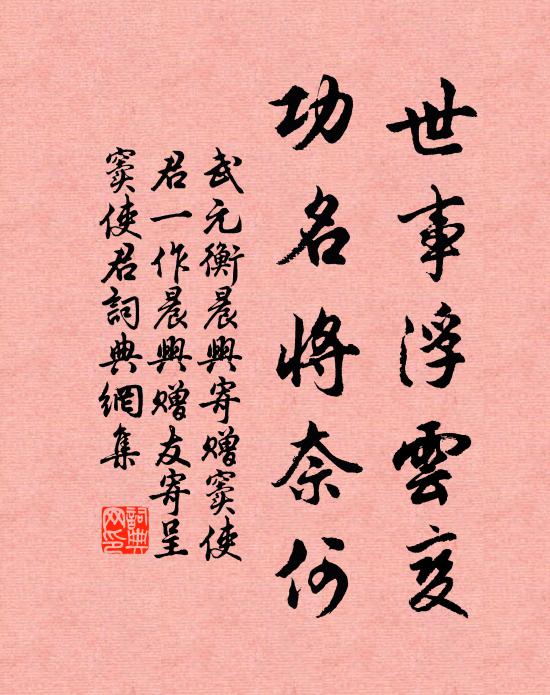 世事浮雲变
功名将奈何
武元衡晨興寄贈窦使
君一作晨興贈友寄呈
窦使君詞典網集
詞典
网印